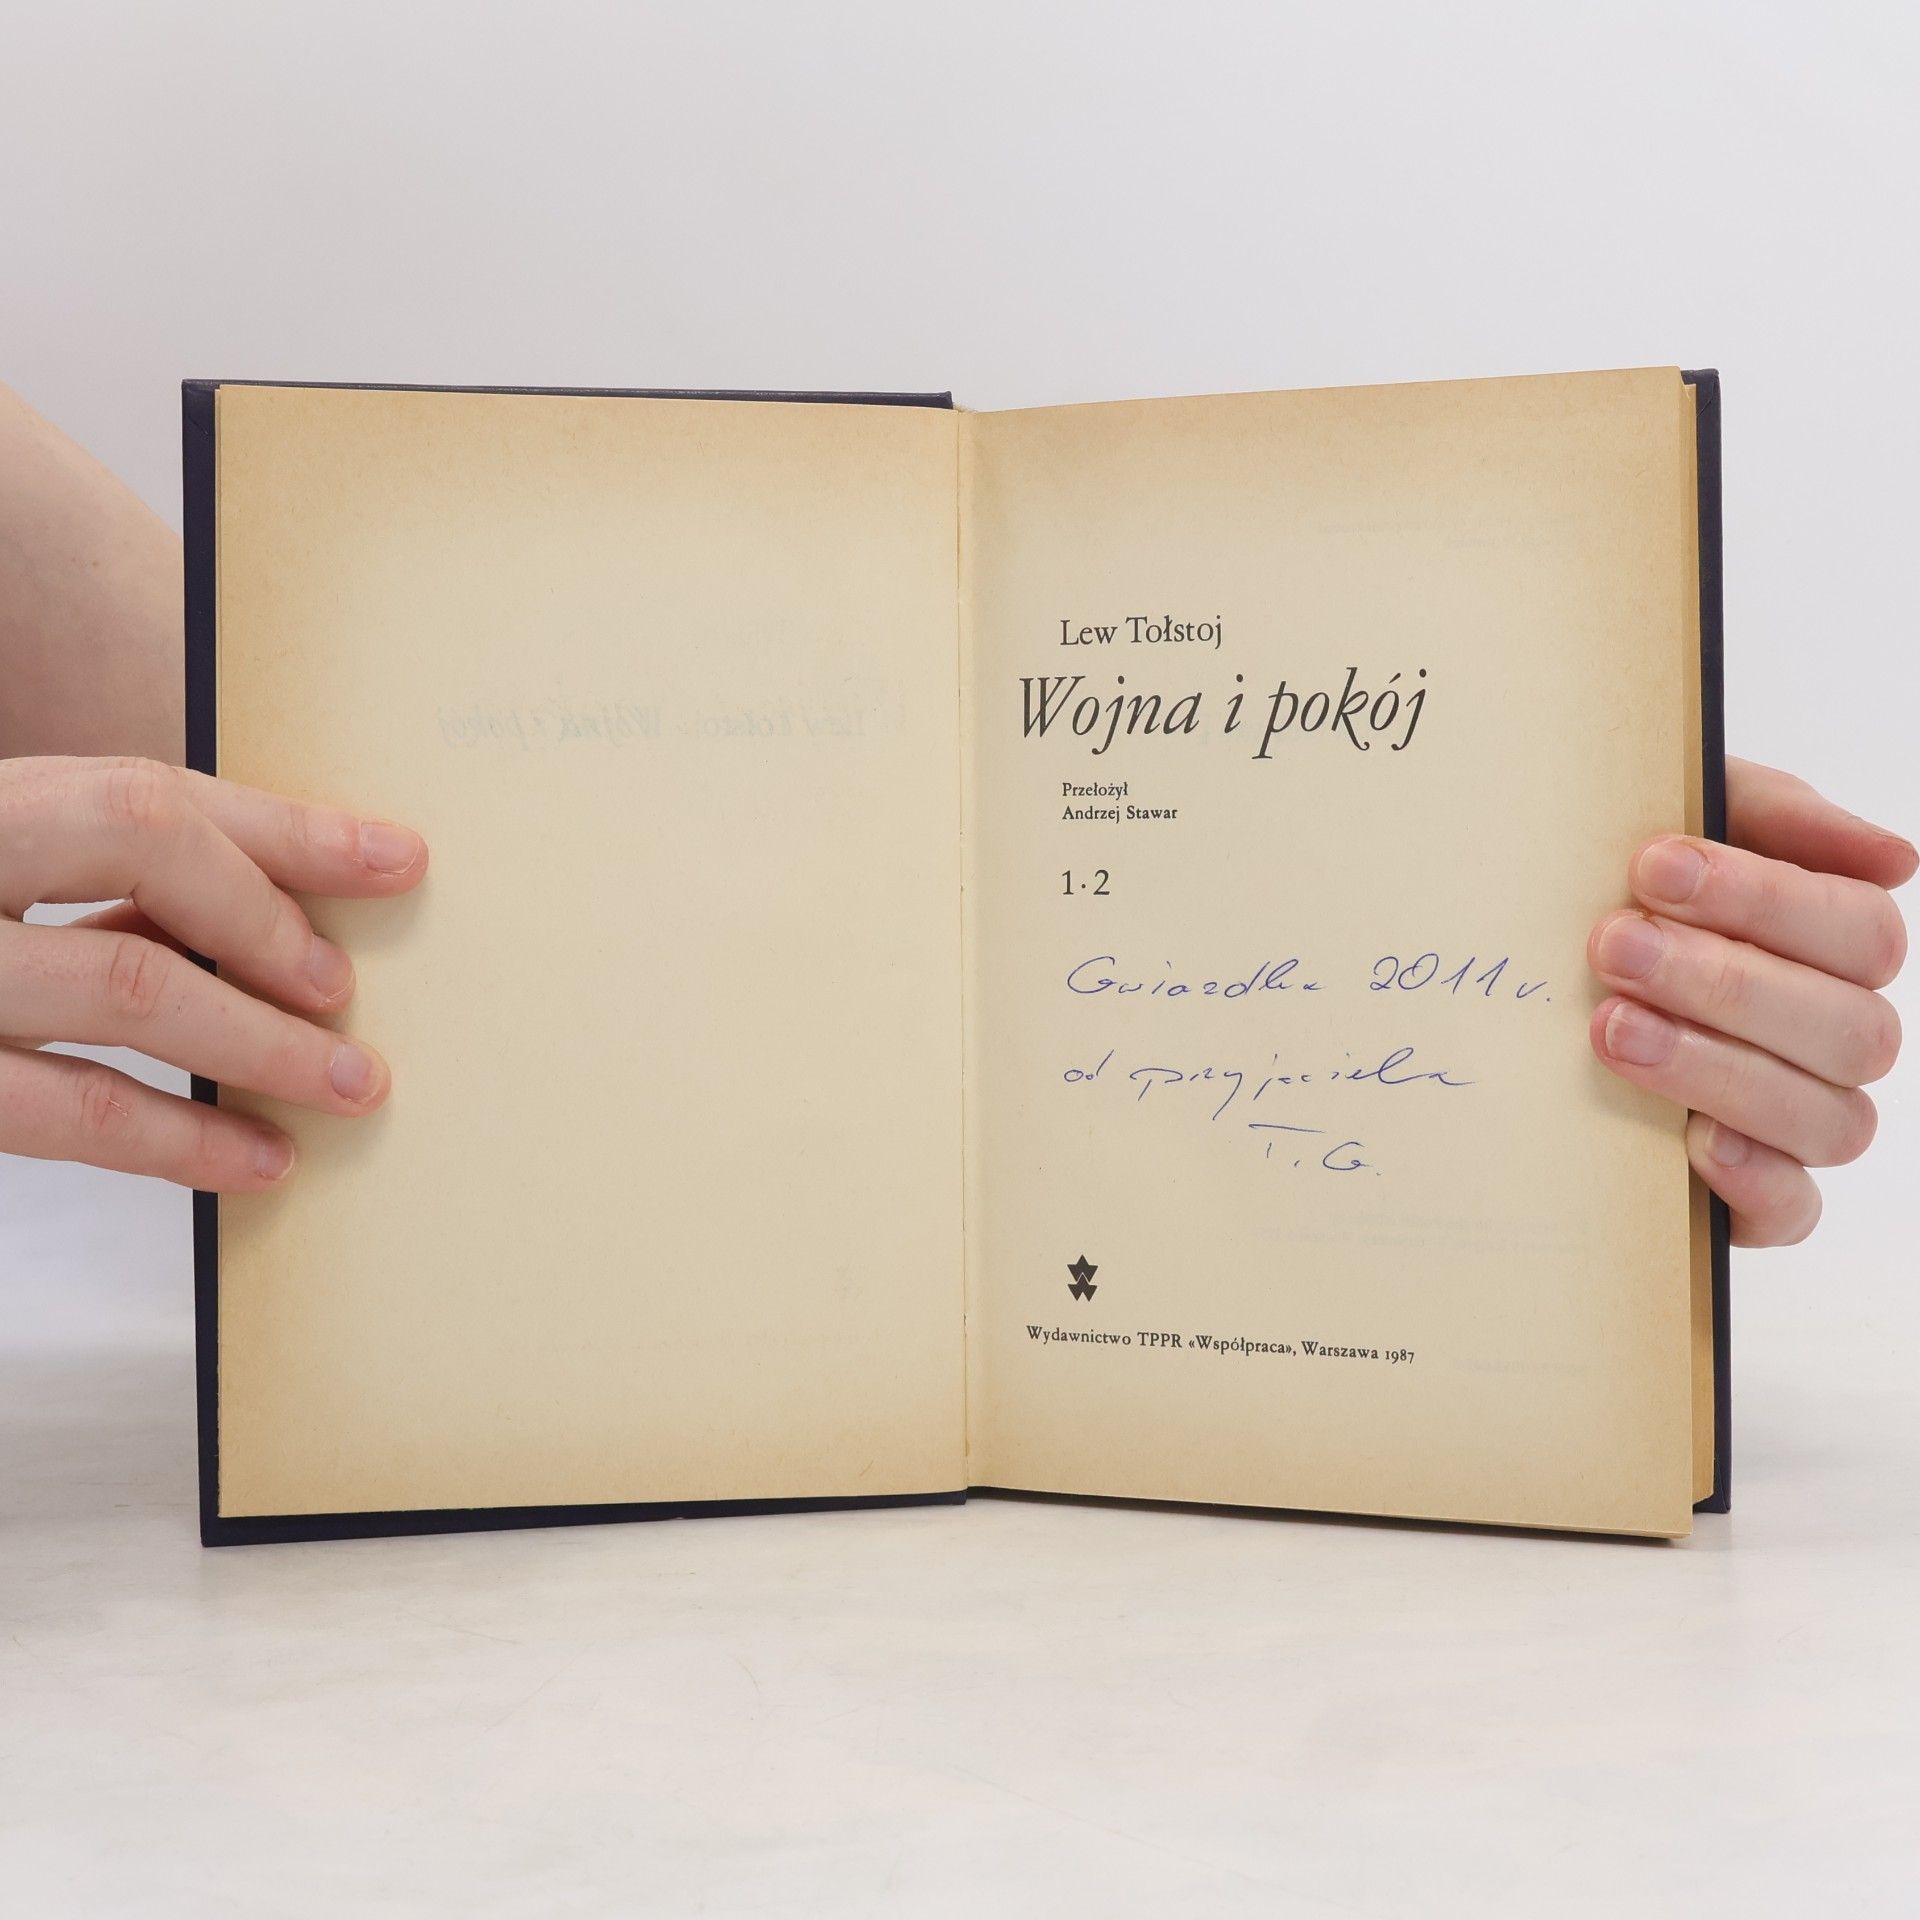 Lew Tołstoj
Wojna i pokój
Przełożył
Andrzej Stawar
1·2
Gwiazdka 2011 r.
od przyjaciela
T. G.
Wydawnictwo TPPR «Współpraca», Warszawa 1987